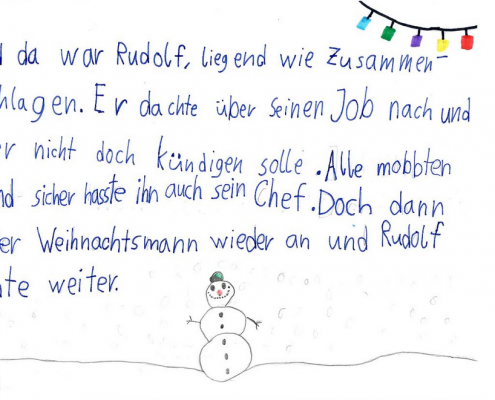 da war Rudolf, liegend wie Zusammen-
hlagen. Er dachte über seinen Job nach und
er nicht doch kündigen solle. Alle mobbten
nd sicher hasste ihn auch sein Chef. Doch dann
er Weihnachtsmann wieder an und Rudolf
te weiter.